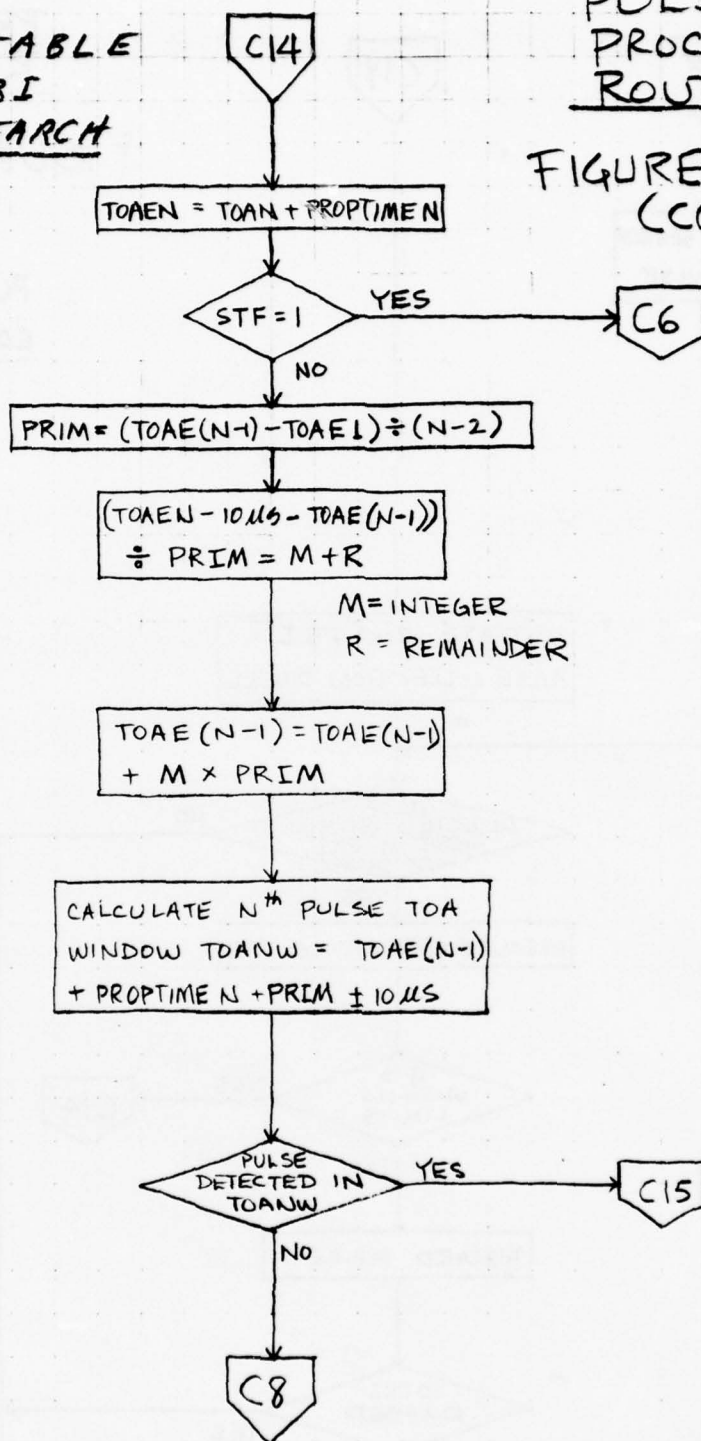 TABLE
C14
TOAEN = TOAN + PROPTIME N
STF = 1
YES
C6
NO
PRIM = (TOAE(N-1) - TOAE1) ÷ (N-2)
(TOAEN - 10 µS - TOAE(N-1))
÷ PRIM = M + R
M = INTEGER
R = REMAINDER
TOAE (N-1) = TOAE(N-1)
+ M × PRIM
CALCULATE Nth PULSE TOA
WINDOW TOANW = TOAE(N-1)
+ PROPTIME N + PRIM ± 10 µS
PULSE
DETECTED IN
TOANW
YES
C15
NO
C8
FIGURE